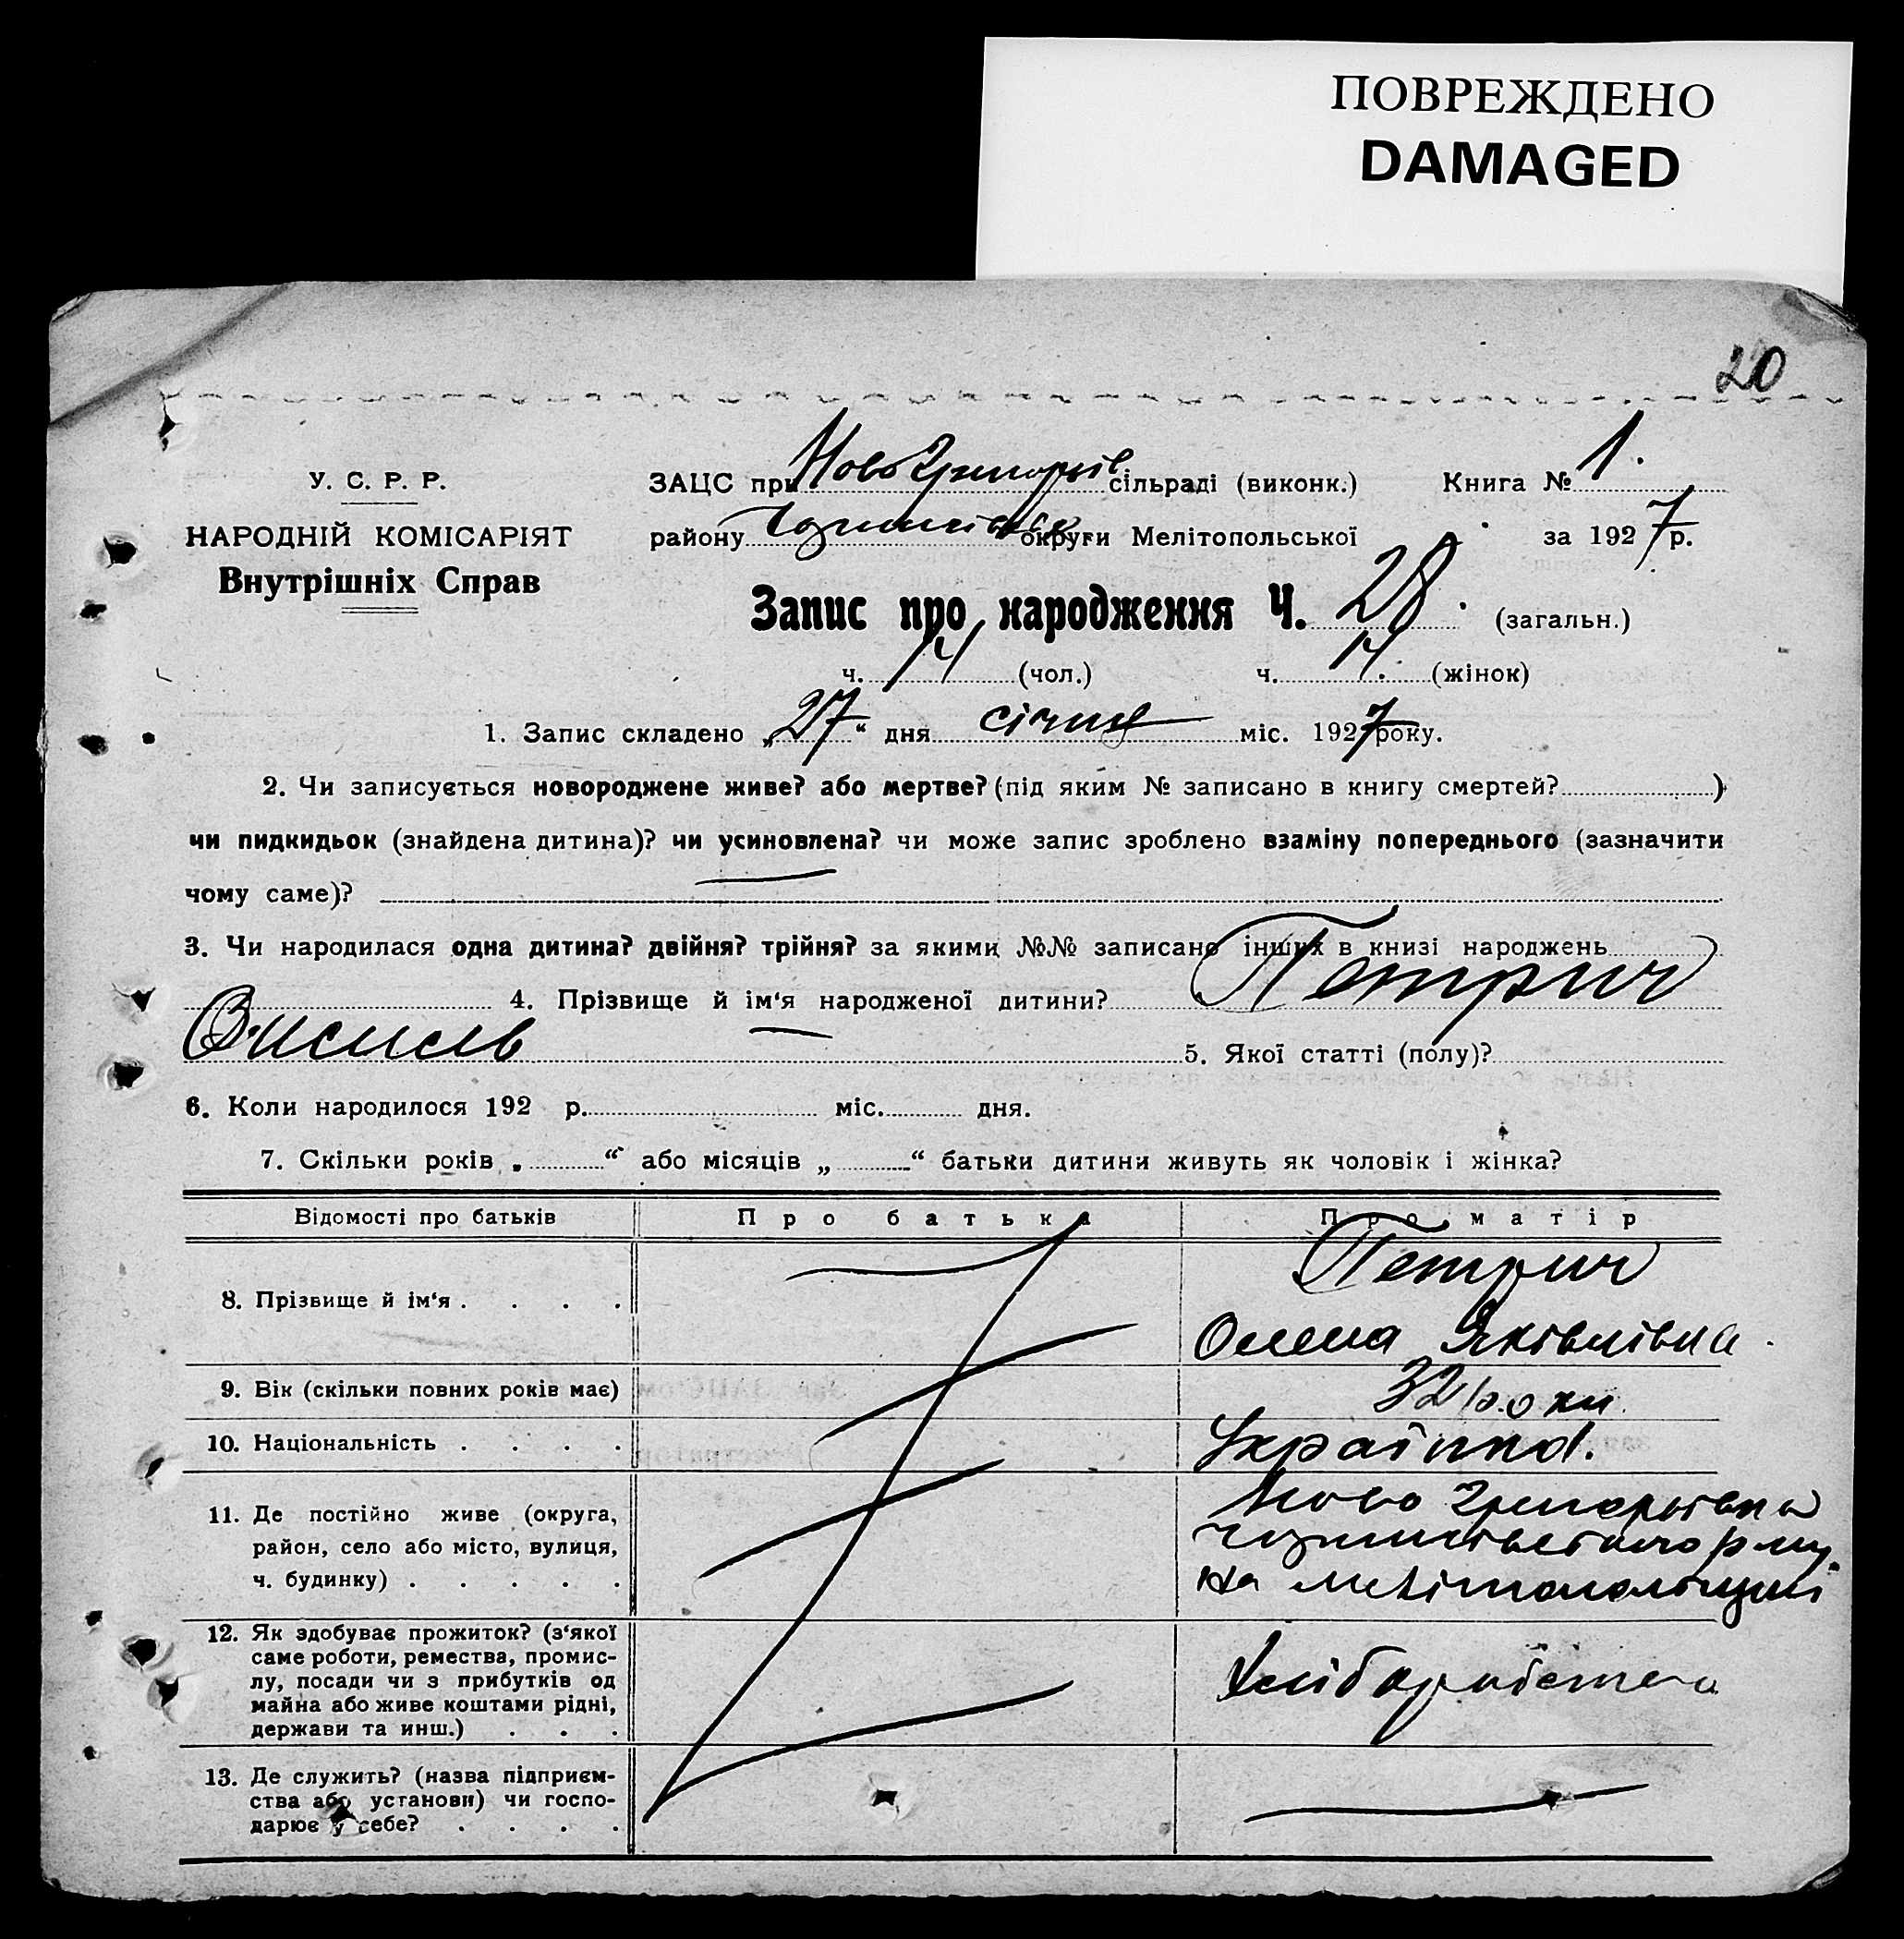 ПОВРЕЖДЕНО
DAMAGED
20
У. С. Р. Р.
НАРОДНІЙ КОМІСАРІЯТ
Внутрішніх Справ
ЗАЦС при Ново Григорів сільраді (виконк.) Книга № 1.
району округи Мелітопольської за 1927 р.
Запис про народження Ч. 28. (загальн.)
ч. 14 (чол.) ч. 14. (жінок)
1. Запис складено „27“ дня січня міс. 1927 року.
2. Чи записується новороджене живе? або мертве? (під яким № записано в книгу смертей? )
чи пидкидьок (знайдена дитина)? чи усиновлена? чи може запис зроблено взаміну попереднього (зазначити
чому саме)?
3. Чи народилася одна дитина? двійня? трійня? за якими №№ записано інших в книзі народжень
4. Прізвище й ім‘я народженої дитини? Петрич
Василь 5. Якої статті (полу)?
6. Коли народилося 192 р. міс. дня.
7. Скільки років „ “ або місяців „ “ батьки дитини живуть як чоловік і жінка?
Відомості про батьків Про батька Про матір
8. Прізвище й ім‘я . . . . Петрич
Олена Яківлівна
9. Вік (скільки повних років має) 32 роки
10. Національність . . . . Українка.
11. Де постійно живе (округа, Ново Григорівка
район, село або місто, вулиця,
ч. будинку) . . . . . на Мелітопольщині
12. Як здобуває прожиток? (з‘якої
саме роботи, ремества, промис-
лу, посади чи з прибутків од Хліборобство
майна або живе коштами рідні,
держави та инш.) . . .
13. Де служить? (назва підприєм-
ства або установи) чи госпо-
дарює у себе? . . . .